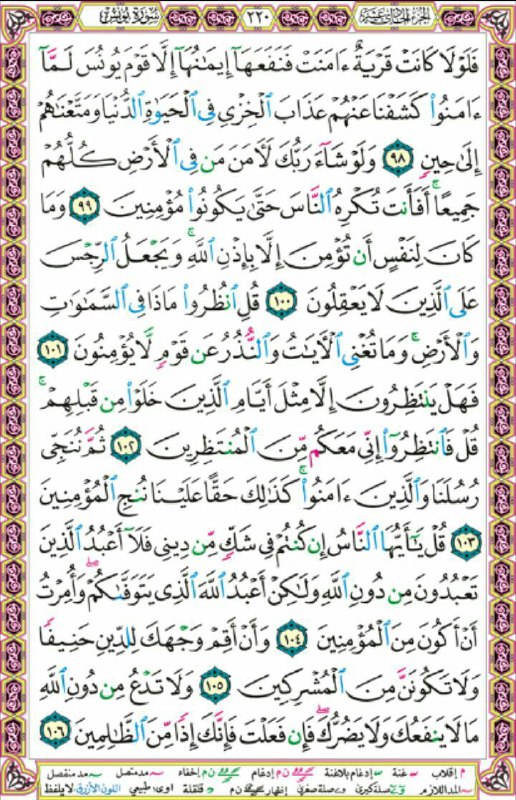 الجزء الحادي عشر ٢٢٠ سورة يونس
فَلَوْلَا كَانَتْ قَرْيَةٌ ءَامَنَتْ فَنَفَعَهَآ إِيمَٰنُهَآ إِلَّا قَوْمَ يُونُسَ لَمَّآ
ءَامَنُوا۟ كَشَفْنَا عَنْهُمْ عَذَابَ ٱلْخِزْىِ فِى ٱلْحَيَوٰةِ ٱلدُّنْيَا وَمَتَّعْنَٰهُمْ
إِلَىٰ حِينٍ ٩٨ وَلَوْ شَآءَ رَبُّكَ لَـَٔامَنَ مَن فِى ٱلْأَرْضِ كُلُّهُمْ
جَمِيعًا ۚ أَفَأَنتَ تُكْرِهُ ٱلنَّاسَ حَتَّىٰ يَكُونُوا۟ مُؤْمِنِينَ ٩٩ وَمَا
كَانَ لِنَفْسٍ أَن تُؤْمِنَ إِلَّا بِإِذْنِ ٱللَّهِ ۚ وَيَجْعَلُ ٱلرِّجْسَ
عَلَى ٱلَّذِينَ لَا يَعْقِلُونَ ١٠٠ قُلِ ٱنظُرُوا۟ مَاذَا فِى ٱلسَّمَٰوَٰتِ
وَٱلْأَرْضِ ۚ وَمَا تُغْنِى ٱلْـَٔايَٰتُ وَٱلنُّذُرُ عَن قَوْمٍ لَّا يُؤْمِنُونَ ١٠١
فَهَلْ يَنتَظِرُونَ إِلَّا مِثْلَ أَيَّامِ ٱلَّذِينَ خَلَوْا۟ مِن قَبْلِهِمْ ۚ
قُلْ فَٱنتَظِرُوٓا۟ إِنِّى مَعَكُم مِّنَ ٱلْمُنتَظِرِينَ ١٠٢ ثُمَّ نُنَجِّى
رُسُلَنَا وَٱلَّذِينَ ءَامَنُوا۟ ۚ كَذَٰلِكَ حَقًّا عَلَيْنَا نُنجِ ٱلْمُؤْمِنِينَ
١٠٣ قُلْ يَٰٓأَيُّهَا ٱلنَّاسُ إِن كُنتُمْ فِى شَكٍّ مِّن دِينِى فَلَآ أَعْبُدُ ٱلَّذِينَ
تَعْبُدُونَ مِن دُونِ ٱللَّهِ وَلَٰكِنْ أَعْبُدُ ٱللَّهَ ٱلَّذِى يَتَوَفَّىٰكُمْ ۖ وَأُمِرْتُ
أَنْ أَكُونَ مِنَ ٱلْمُؤْمِنِينَ ١٠٤ وَأَنْ أَقِمْ وَجْهَكَ لِلدِّينِ حَنِيفًا
وَلَا تَكُونَنَّ مِنَ ٱلْمُشْرِكِينَ ١٠٥ وَلَا تَدْعُ مِن دُونِ ٱللَّهِ
مَا لَا يَنفَعُكَ وَلَا يَضُرُّكَ ۖ فَإِن فَعَلْتَ فَإِنَّكَ إِذًا مِّنَ ٱلظَّٰلِمِينَ ١٠٦
م إقلاب غنة إدغام بلاغنة ن م إدغام ن م إخفاء مد متصل مد منفصل
المد اللازم صلة كبرى صلة صغرى إظهار قلقلة أو طبيعي اللون الأزرق لا يلفظ